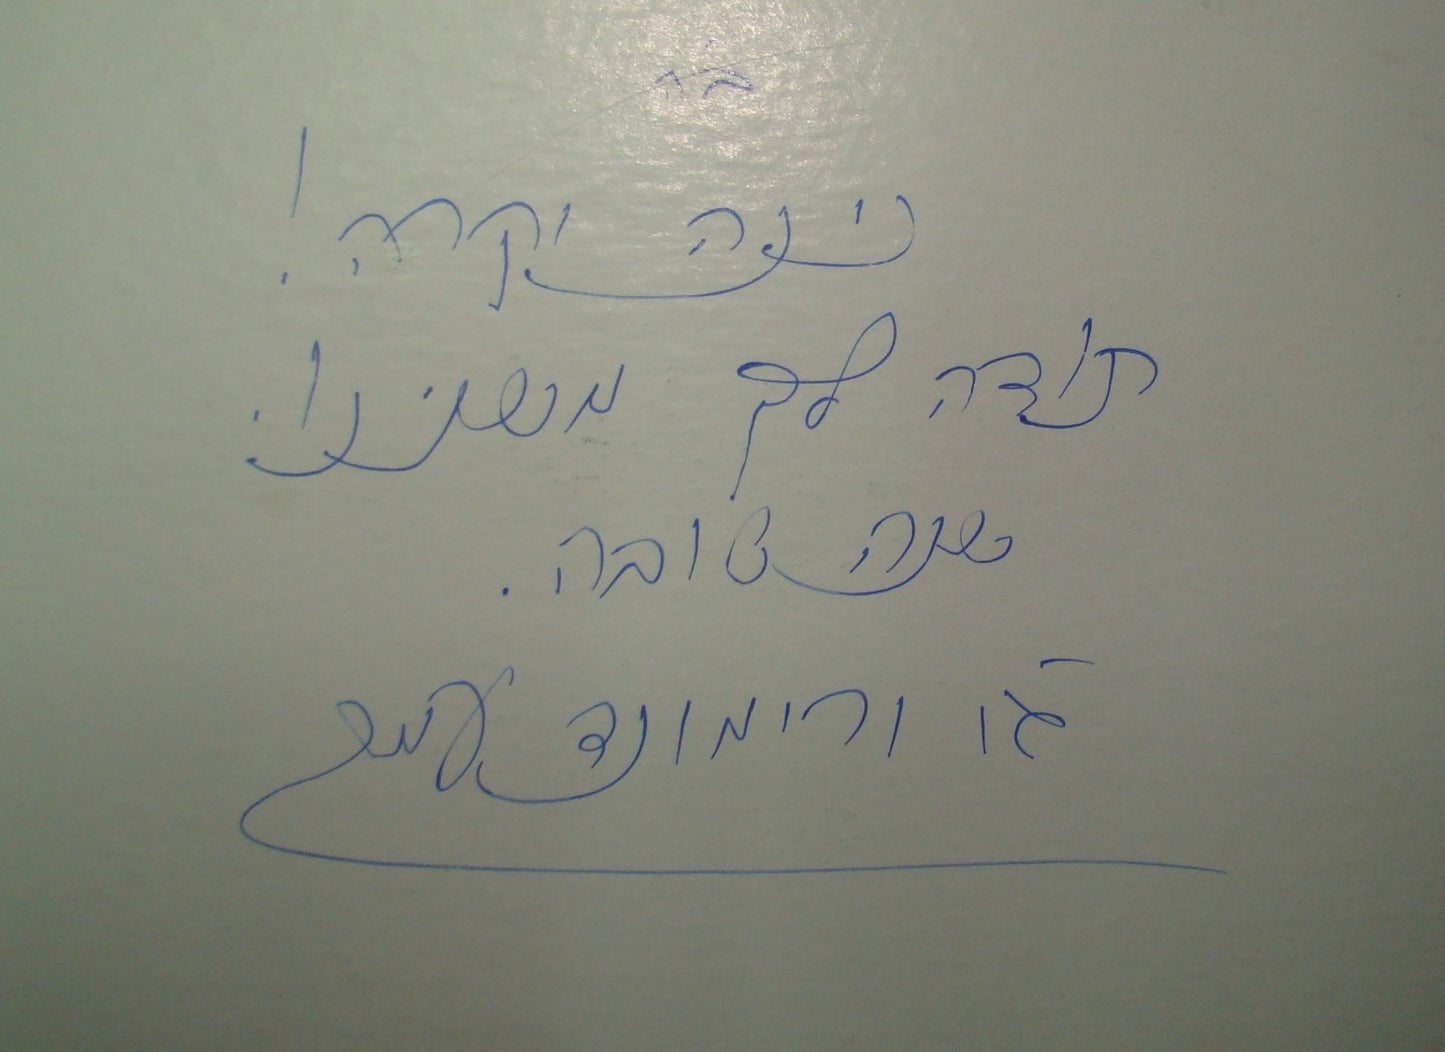 ב"ה
נינה יקרה!
תודה לך משנינו!
שנה טובה.
ג'ו ורימונד